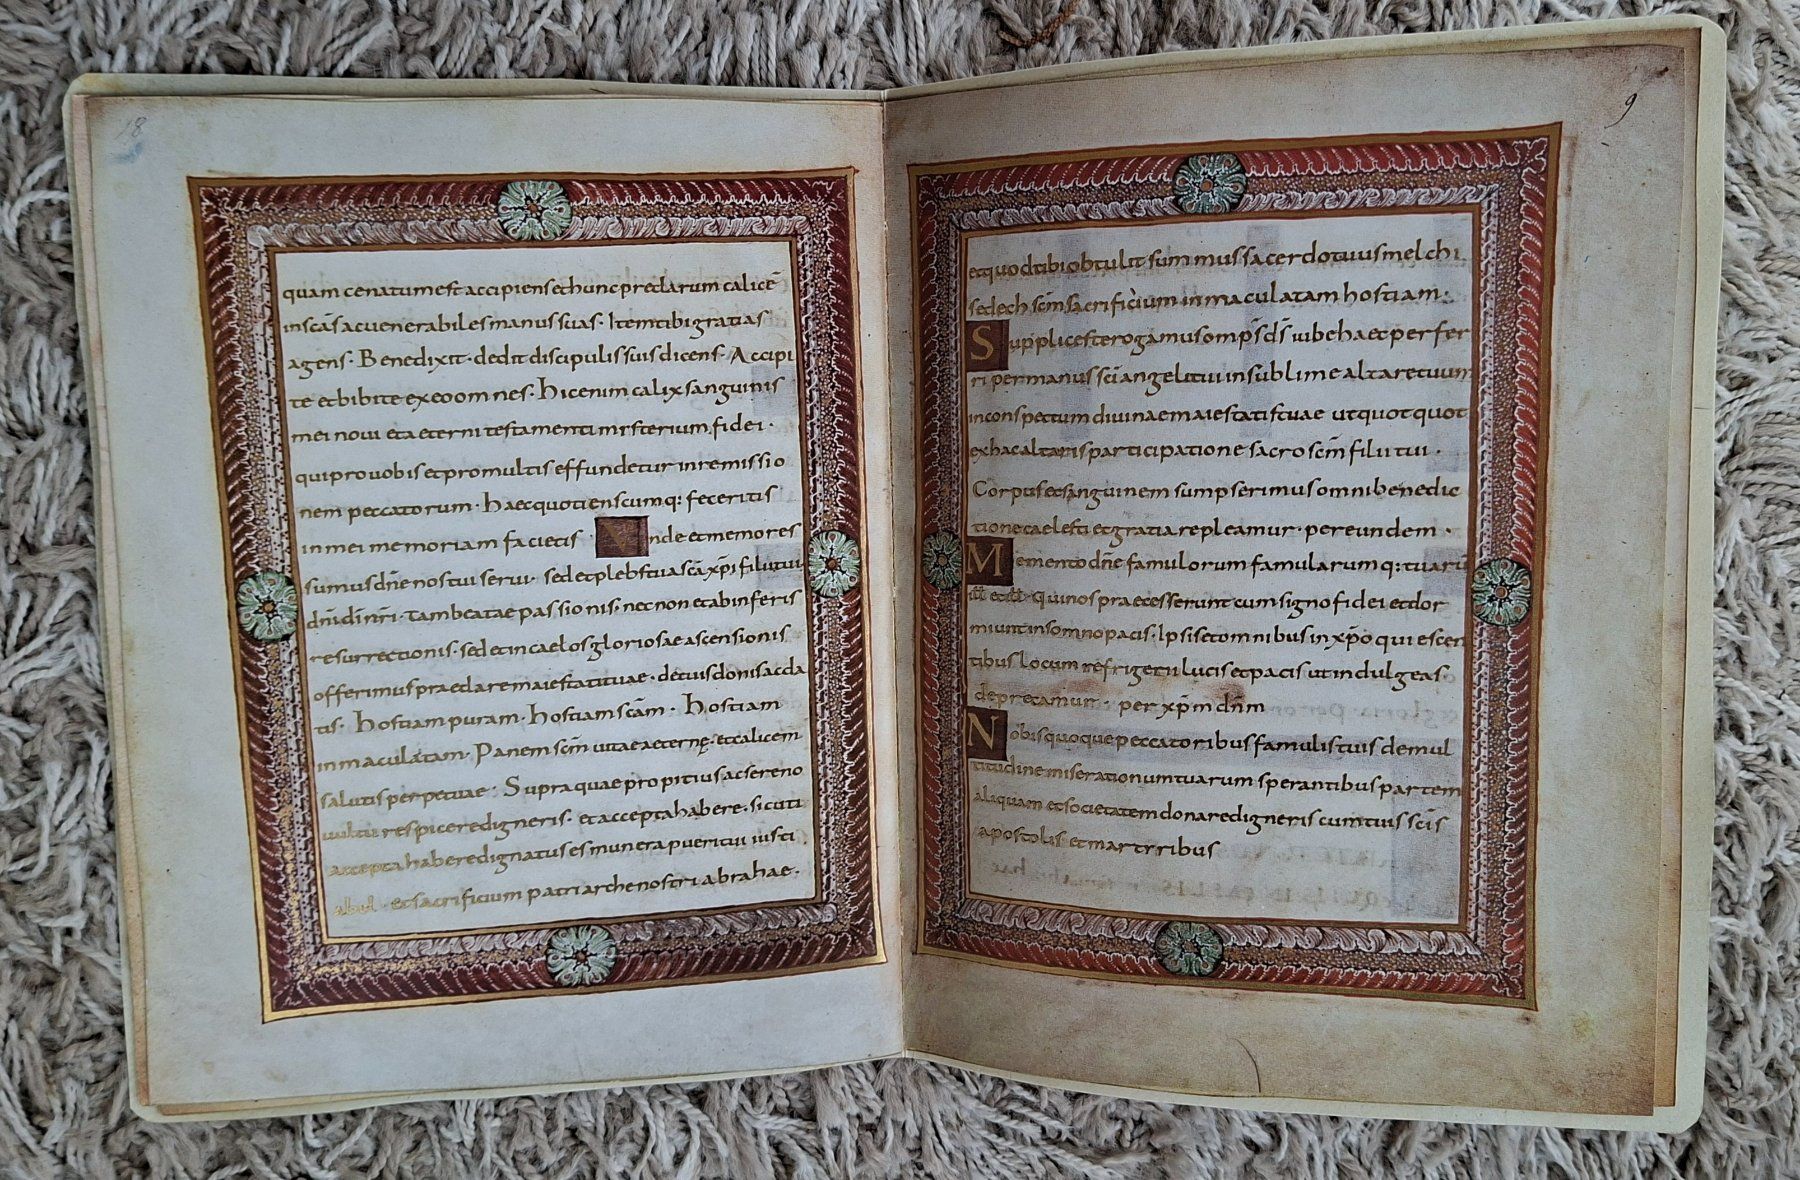 18
quam cenatum est accipiens et hunc preclarum calicē
in scās ac uenerabiles manus suas · Item tibi gratias
agens · Benedixit · dedit discipulis suis dicens · Accipi
te et bibite ex eo omnes · Hic enim calix sanguinis
mei noui et aeterni testamenti mysterium fidei ·
qui pro uobis et pro multis effundetur in remissio
nem peccatorum · haec quotienscumq: feceritis
in mei memoriam facietis · Vnde et memores
sumus dn̄e nos tui serui · sed et plebs tua scā xp̄i filii tui
dn̄i di nr̄i · tam beatae passionis · nec non et ab inferis
resurrectionis · sed et in caelos gloriosae ascensionis
offerimus praeclare maiestati tuae · de tuis donis ac da
tis · hostiam puram · hostiam scām · hostiam
inmaculatam · Panem scm̄ uitae aeternę · et calicem
salutis perpetuae · Supra quae propitius ac sereno
uultu respicere digneris · et accepta habere · sicuti
accepta habere dignatus es munera pueri tui iusti
abel · et sacrificium patriarche nostri abrahae ·
9
et quod tibi obtulit summus sacerdos tuus melchi
sedech scm̄ sacrificium inmaculatam hostiam ·
Supplices te rogamus omp̄s ds̄ iube haec perfer
ri per manus scī angeli tui in sublime altare tuum
in conspectum diuinae maiestatis tuae ut quotquot
ex hac altaris participatione sacro scm̄ filii tui ·
Corpus et sanguinem sumpserimus omni benedic
tione caelesti et gratia repleamur · per eundem ·
Memento dn̄e famulorum famularumq: tuarū
ill̄ et ill̄ · qui nos praecesserunt cum signo fidei et dor
miunt in somno pacis · Ipsis et omnibus in xp̄o quiescen
tibus locum refrigerii lucis et pacis ut indulgeas
deprecamur · per xp̄m dn̄m
Nobis quoque peccatoribus famulis tuis de mul
titudine miserationum tuarum sperantibus partem
aliquam et societatem donare digneris cum tuis scīs
apostolis et martyribus